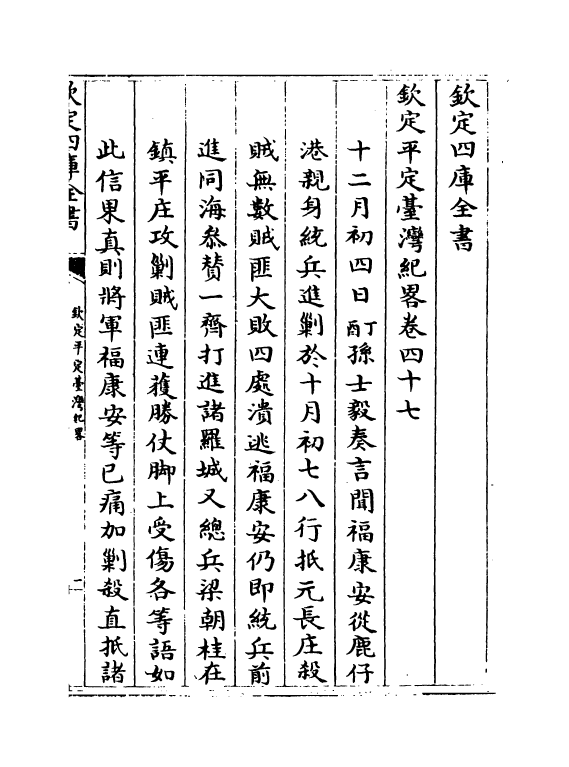 欽定四庫全書
欽定平定臺灣紀畧卷四十七
十二月初四日丁酉孫士毅奏言聞福康安從鹿仔
港親身統兵進剿於十月初七八行抵元長庄殺
賊無數賊匪大敗四處潰逃福康安仍即統兵前
進同海叅贊一齊打進諸羅城又總兵梁朝桂在
鎮平庄攻剿賊匪連獲勝仗脚上受傷各等語如
此信果真則將軍福康安等已痛加剿殺直抵諸
欽定四庫全書
欽定平定臺灣紀畧